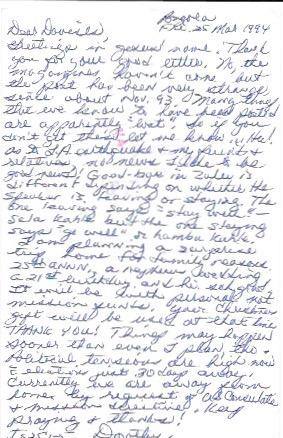 Fri. 25 Mar 1994
Dear Davises,
Greetings in Jesus' name! Thank
you for your good letter. No, the
magazines haven't come, but
the post has been very strange
since about Nov. 93. Many things
that we know to have been posted
are apparently "lost", so if you
don't get them let me know, OK!
As to L.A. earthquake & my friends &
relatives, no news I take to be
good news! Good-bye in Zulu is
different depending on whether the
speaker is leaving or staying. The
one leaving says "stay well" -
sala kahle but the one staying
says "go well" or hamba kahle.
I am planning a surprise
trip home for family reasons
25th ann., a nephew wedding
a 21st birthday, and hi sch grad.
It will be with personal not
mission funds. Your Christmas
gift will be used at that time
THANK YOU! Things may happen
sooner than even I plan tho.
Political tensions are high now
& elections just 30 days away.
Currently we are away from
home by request of US Consulate
& mission directives. Keep
praying & thanks!
Dorothy